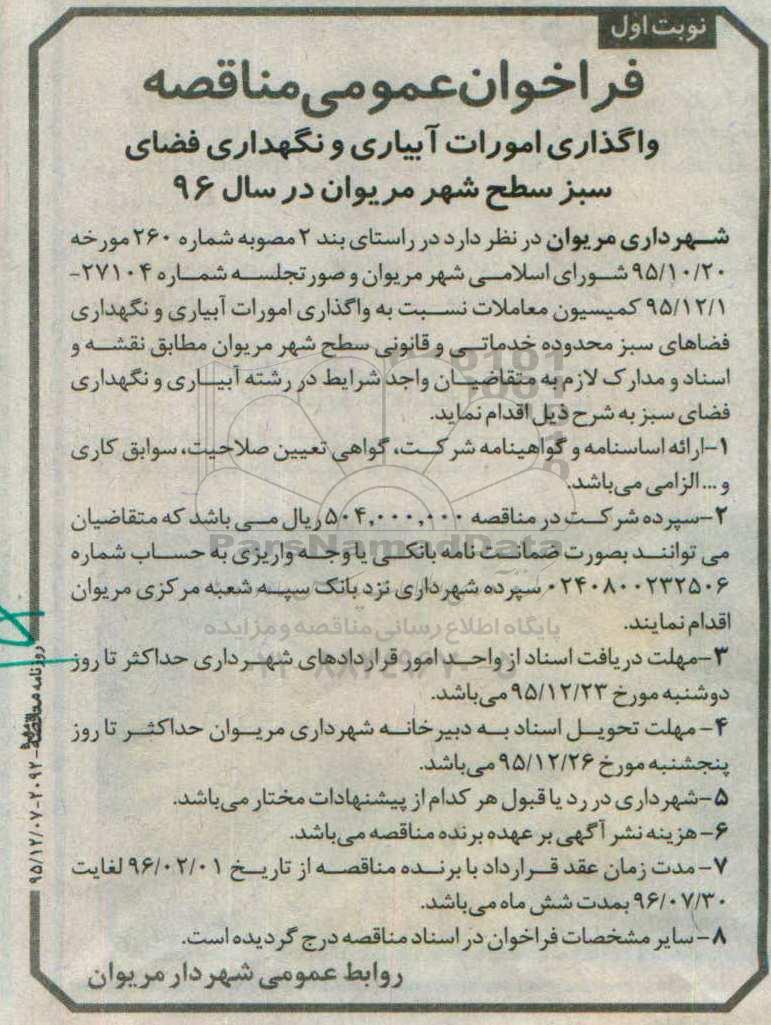 نوبت اول
فراخوان عمومی مناقصه
واگذاری امورات آبیاری و نگهداری فضای
سبز سطح شهر مریوان در سال ۹۶
شهرداری مریوان در نظر دارد در راستای بند ۲ مصوبه شماره ۲۶۰ مورخه
۹۵/۱۰/۲۰ شورای اسلامی شهر مریوان و صورتجلسه شماره ۲۷۱۰۴-
۹۵/۱۲/۱ کمیسیون معاملات نسبت به واگذاری امورات آبیاری و نگهداری
فضاهای سبز محدوده خدماتی و قانونی سطح شهر مریوان مطابق نقشه و
اسناد و مدارک لازم به متقاضیان واجد شرایط در رشته آبیاری و نگهداری
فضای سبز به شرح ذیل اقدام نماید.
۱-ارائه اساسنامه و گواهینامه شرکت، گواهی تعیین صلاحیت، سوابق کاری
و ... الزامی می‌باشد.
۲-سپرده شرکت در مناقصه ۵۰۴,۰۰۰,۰۰۰ ریال می باشد که متقاضیان
می توانند بصورت ضمانت نامه بانکی یا وجه واریزی به حساب شماره
۰۲۴۰۸۰۰۲۳۲۵۰۶ سپرده شهرداری نزد بانک سپه شعبه مرکزی مریوان
اقدام نمایند.
ParsNamadData
پایگاه اطلاع رسانی مناقصه و مزایده
۳-مهلت دریافت اسناد از واحد امور قراردادهای شهرداری حداکثر تا روز
دوشنبه مورخ ۹۵/۱۲/۲۳ می‌باشد.
۴- مهلت تحویل اسناد به دبیرخانه شهرداری مریوان حداکثر تا روز
پنجشنبه مورخ ۹۵/۱۲/۲۶ می‌باشد.
۵-شهرداری در رد یا قبول هر کدام از پیشنهادات مختار می‌باشد.
۶- هزینه نشر آگهی بر عهده برنده مناقصه می‌باشد.
۷- مدت زمان عقد قرارداد با برنده مناقصه از تاریخ ۹۶/۰۲/۰۱ لغایت
۹۶/۰۷/۳۰ بمدت شش ماه می‌باشد.
۸- سایر مشخصات فراخوان در اسناد مناقصه درج گردیده است.
روابط عمومی شهردار مریوان
روزنامه مناقصه-۲۰۹۲-۹۵/۱۲/۰۷